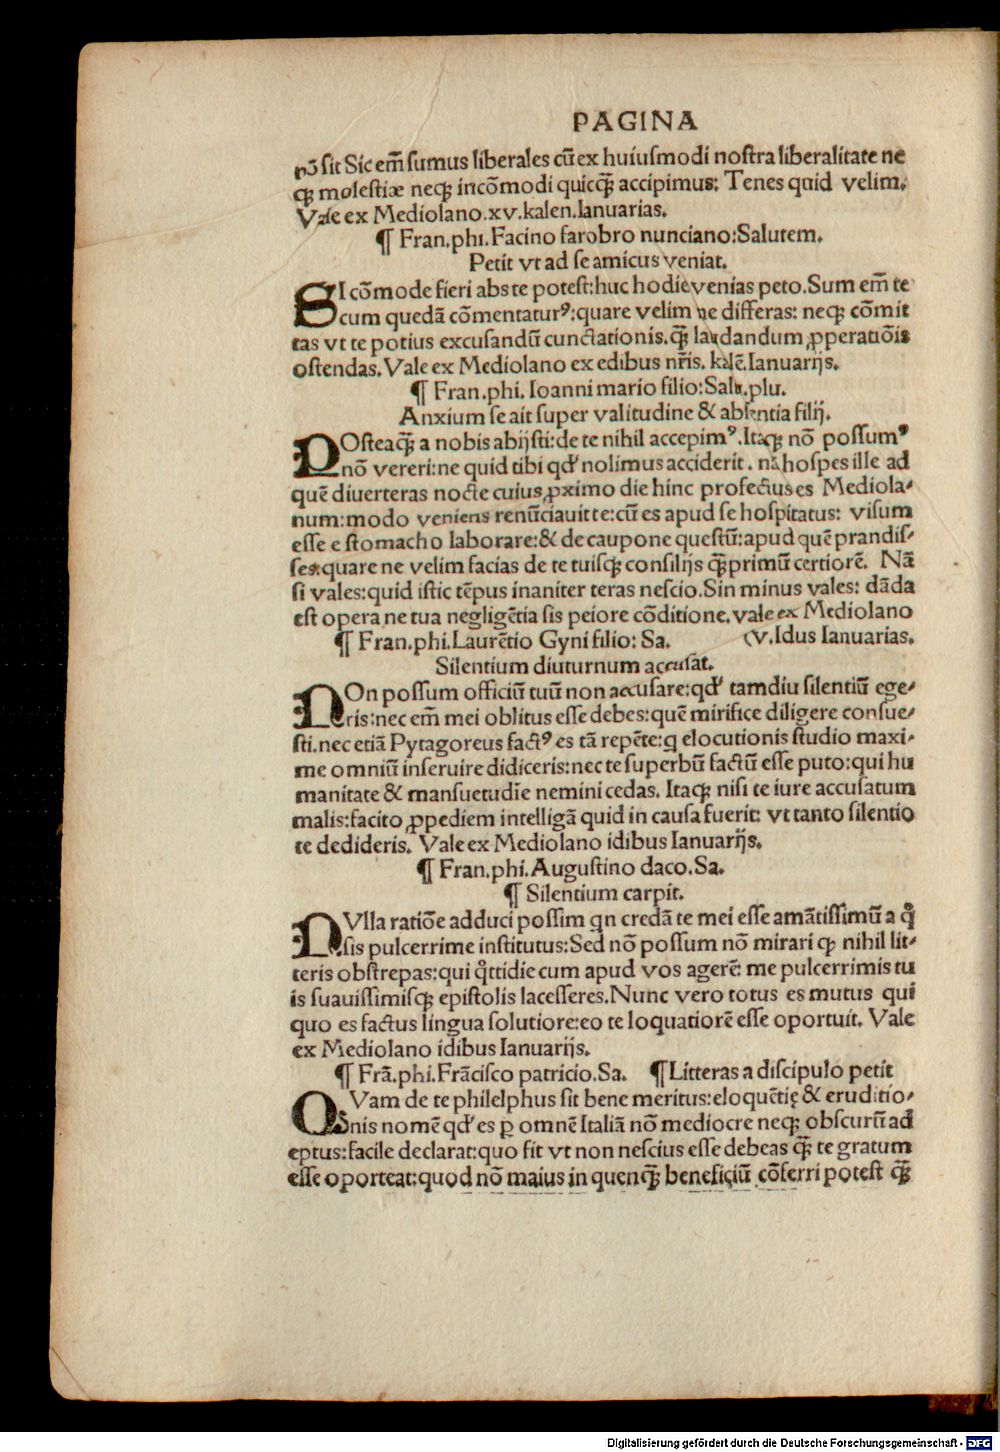 PAGINA
nō sit Sic em̄ sumus liberales cū ex huiusmodi nostra liberalitate ne
qꝫ molestiæ neqꝫ incōmodi quicq̄ꝫ accipimus: Tenes quid velim.
Vale ex Mediolano.xv.kalen.Ianuarias.
¶ Fran.phi.Facino farobro nunciano:Salutem.
Petit vt ad se amicus veniat.
SI cōmode fieri abs te potest:huc hodie venias peto.Sum em̄ te
cum quedā cōmentaturꝰ:quare velim ne differas: neqꝫ cōmit
tas vt te potius excusandū cunctationis.q̄ꝫ laudandum ꝓperatiōis
ostendas.Vale ex Mediolano ex edibus nr̄is. kalē.Ianuarijs.
¶ Fran.phi. Ioanni mario filio:Salu.plu.
Anxium se ait super valitudine & absentia filij.
POsteaq̄ꝫ a nobis abijsti:de te nihil accepimꝰ.Itaqꝫ nō possumꝰ
nō vereri:ne quid tibi qď nolimus acciderit. nā hospes ille ad
quē diuerteras nocte cuius ꝓximo die hinc profectus es Mediola⸗
num:modo veniens renūciauit te:cū es apud se hospitatus: visum
esse e stomacho laborare:& de caupone questū:apud quē prandis⸗
ses.quare ne velim facias de te tuisqꝫ consilijs q̄ꝫprimū certiorē. Nā
si vales:quid istic tēpus inaniter teras nescio.Sin minus vales: dāda
est opera ne tua negligētia sis peiore cōditione.vale ex Mediolano
¶ Fran.phi.Laurētio Gyni filio: Sa. (v.Idus Ianuarias.
Silentium diuturnum accusat.
NOn possum officiū tuū non accusare:qď tamdiu silentiū ege⸗
ris:nec em̄ mei oblitus esse debes:quē mirifice diligere consue⸗
sti.nec etiā Pytagoreus factꝰ es tā repēte:q elocutionis studio maxi⸗
me omniū inseruire didiceris:nec te superbū factū esse puto:qui hu
manitate & mansuetudīe nemini cedas. Itaqꝫ nisi te iure accusatum
malis:facito ꝓpediem intelligā quid in causa fuerit: vt tanto silentio
te dedideris. Vale ex Mediolano idibus Ianuarijs.
¶ Fran.phi.Augustino daco.Sa.
¶ Silentium carpit.
NVlla ratiōe adduci possim qn credā te mei esse amātissimū a q̊
sis pulcerrime institutus:Sed nō possum nō mirari qꝫ nihil lit⸗
teris obstrepas:qui q̊ttidie cum apud vos agerē: me pulcerrimis tu
is suauissimisqꝫ epistolis lacesseres.Nunc vero totus es mutus qui
quo es factus lingua solutiore:eo te loquatiorē esse oportuit. Vale
ex Mediolano idibus Ianuarijs.
¶ Frā.phi.Frācisco patricio.Sa. ¶ Litteras a discipulo petit
QVam de te philelphus sit bene meritus:eloquētię & eruditio⸗
nis nomē qď es ꝑ omnē Italiā nō mediocre neqꝫ obscurū ad
eptus:facile declarat:quo fit vt non nescius esse debeas q̄ꝫ te gratum
esse oporteat:quod nō maius in quenq̄ꝫ beneficiū cōferri potest q̄ꝫ
Digitalisierung gefördert durch die Deutsche Forschungsgemeinschaft - DFG